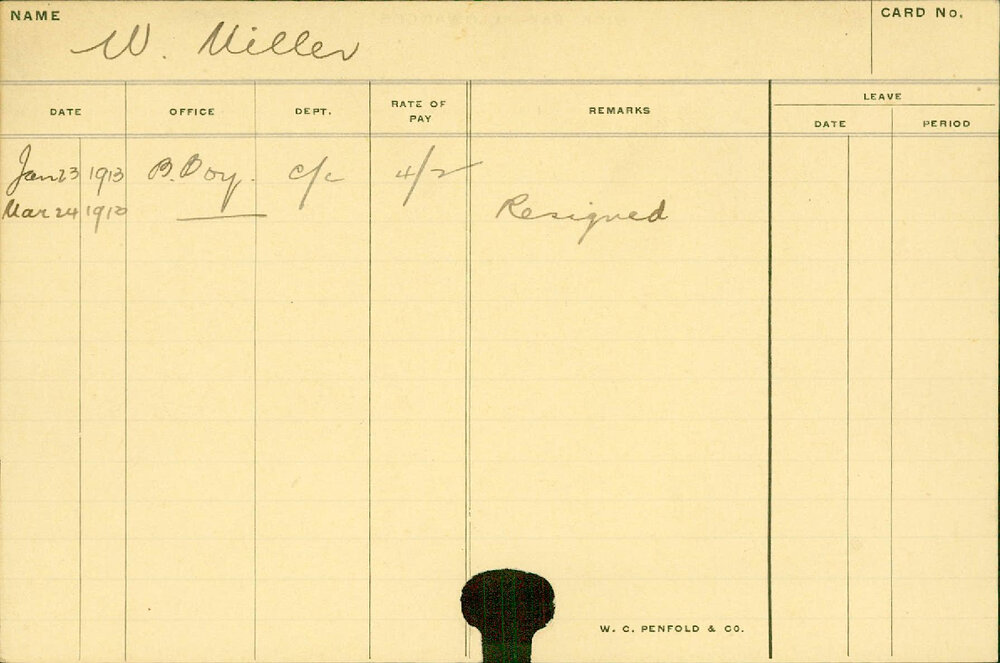 NAME
W. Miller
CARD No.
DATE OFFICE DEPT. RATE OF PAY REMARKS LEAVE
DATE PERIOD
Jan 23 1913 B. Boy. c/c 4/2
Mar 24 1913 Resigned
W. C. PENFOLD & CO.